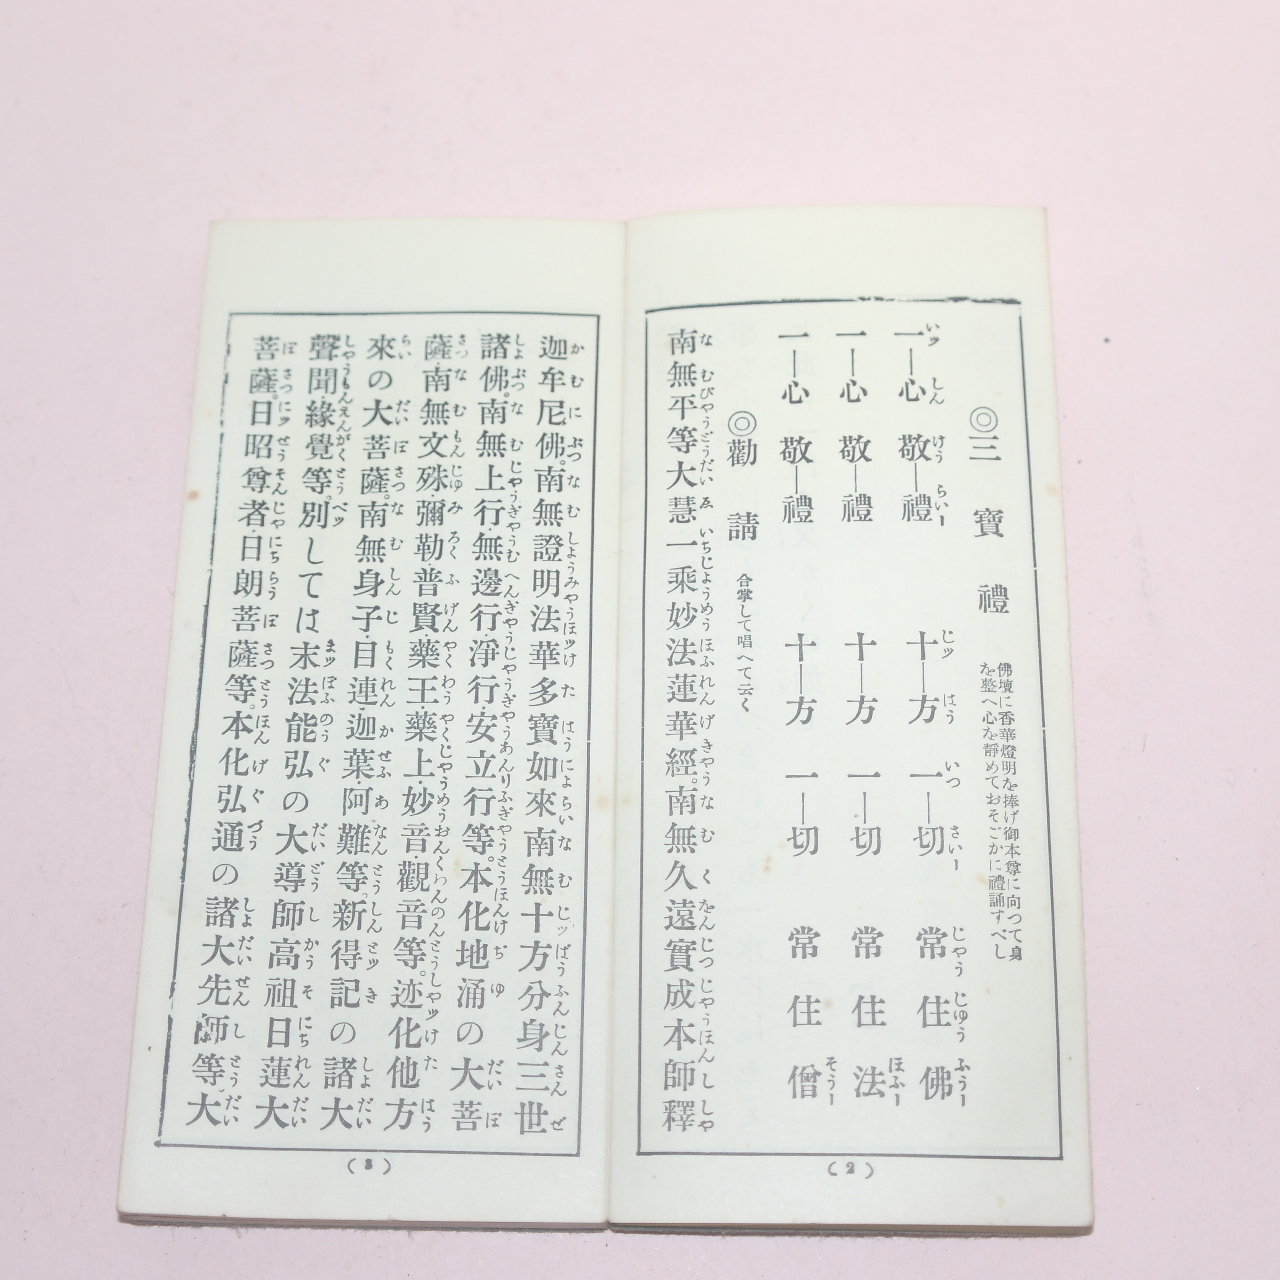 ◎三寶禮
佛壇に香華燈明を捧げ御本尊に向つて身
を整へ心を靜めておそごかに禮誦すべし
一心敬禮十方一切常住佛
一心敬禮十方一切常住法
一心敬禮十方一切常住僧
◎勸請 合掌して唱へて云く
南無平等大慧一乘妙法蓮華經。南無久遠實成本師釋
(2)
迦牟尼佛。南無證明法華多寶如來南無十方分身三世
諸佛。南無上行・無邊行・淨行・安立行等。本化地涌の大菩
薩・南無文殊・彌勒・普賢・藥王・藥上・妙音・觀音等。迹化他方
來の大菩薩。南無身子・目連・迦葉・阿難等。新得記の諸大
聲聞・緣覺等。別しては末法能弘の大導師高祖日蓮大
菩薩。日昭尊者・日朗菩薩等。本化弘通の諸大先師等。大
(3)